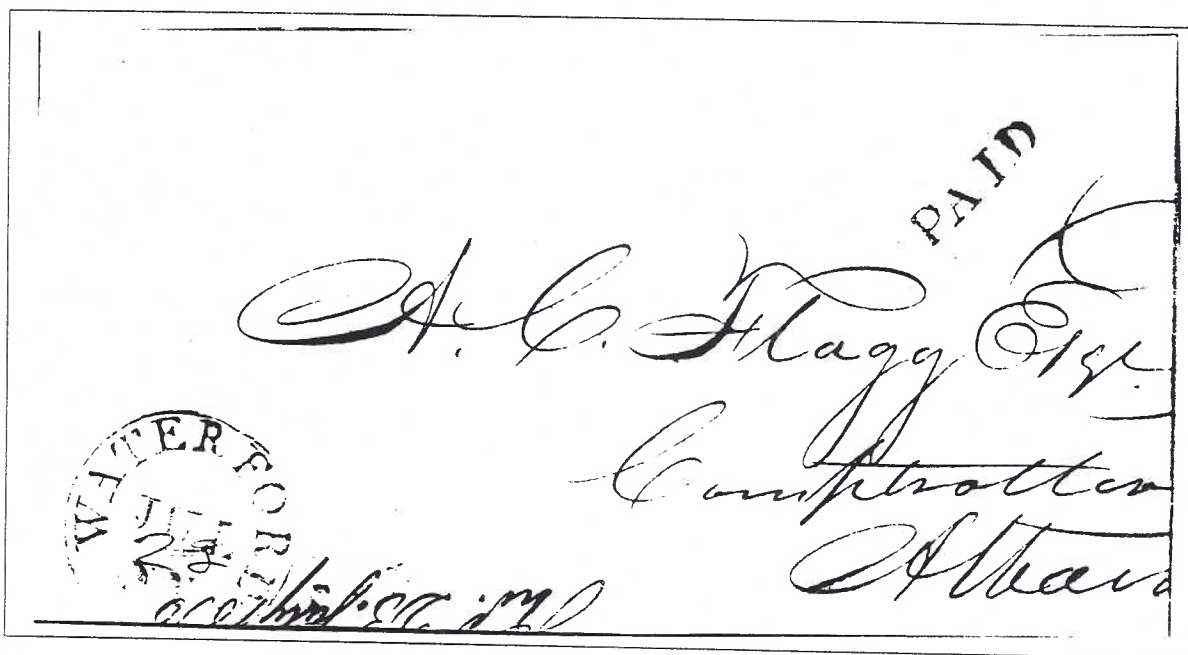 PAID
A. C. Flagg Esqr.
Comptroller
Alban
WATERFORD
JUL
28